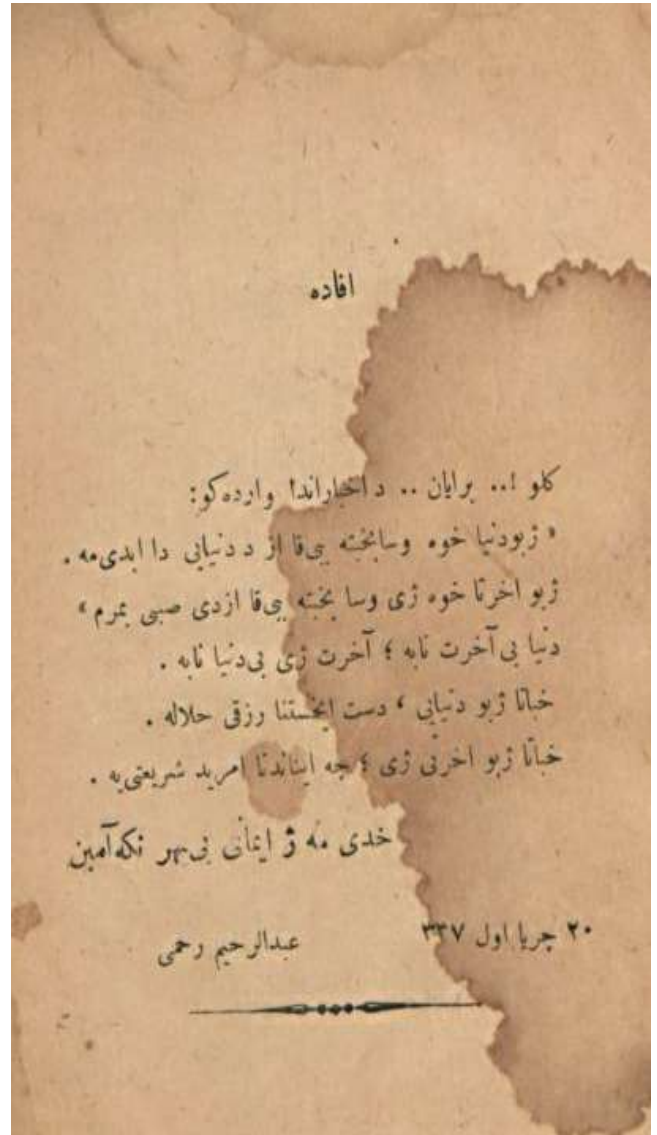 افاده
كلو !.. برايان .. د اخباراندا وارده كو:
« ژبودنيا خوه وسابخبته بی‌قا از د دنيايی دا ابدی‌مه .
ژبو اخرتا خوه ژی وسا بخبته بی‌قا ازدی صبی بمرم »
دنيا بی آخرت نابه ؛ آخرت ژی بی‌دنيا نابه .
خباتا ژبو دنيايی ، دست ايخستنا رزقی حلاله .
خباتا ژبو اخرتی ژی ؛ جه ايناندنا امريد شريعتی‌يه .
خدی مه ژ ايمانی بی‌بهر نكه آمين
٢٠ چريا اول ٣٣٧
عبدالرحيم رحمی